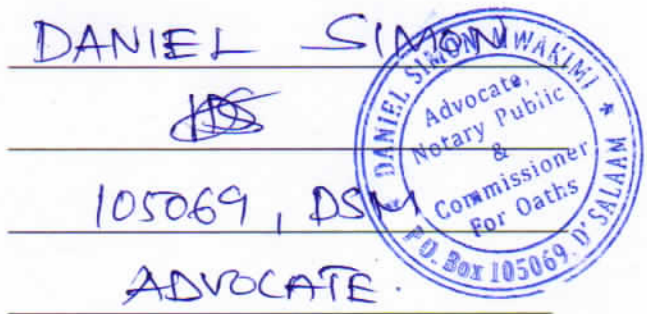 DANIEL SIMON
105069, DSM
ADVOCATE.
* DANIEL SIMON MWAKIMI *
Advocate,
Notary Public
&
Commissioner
For Oaths
P.O. Box 105069. D'SALAAM